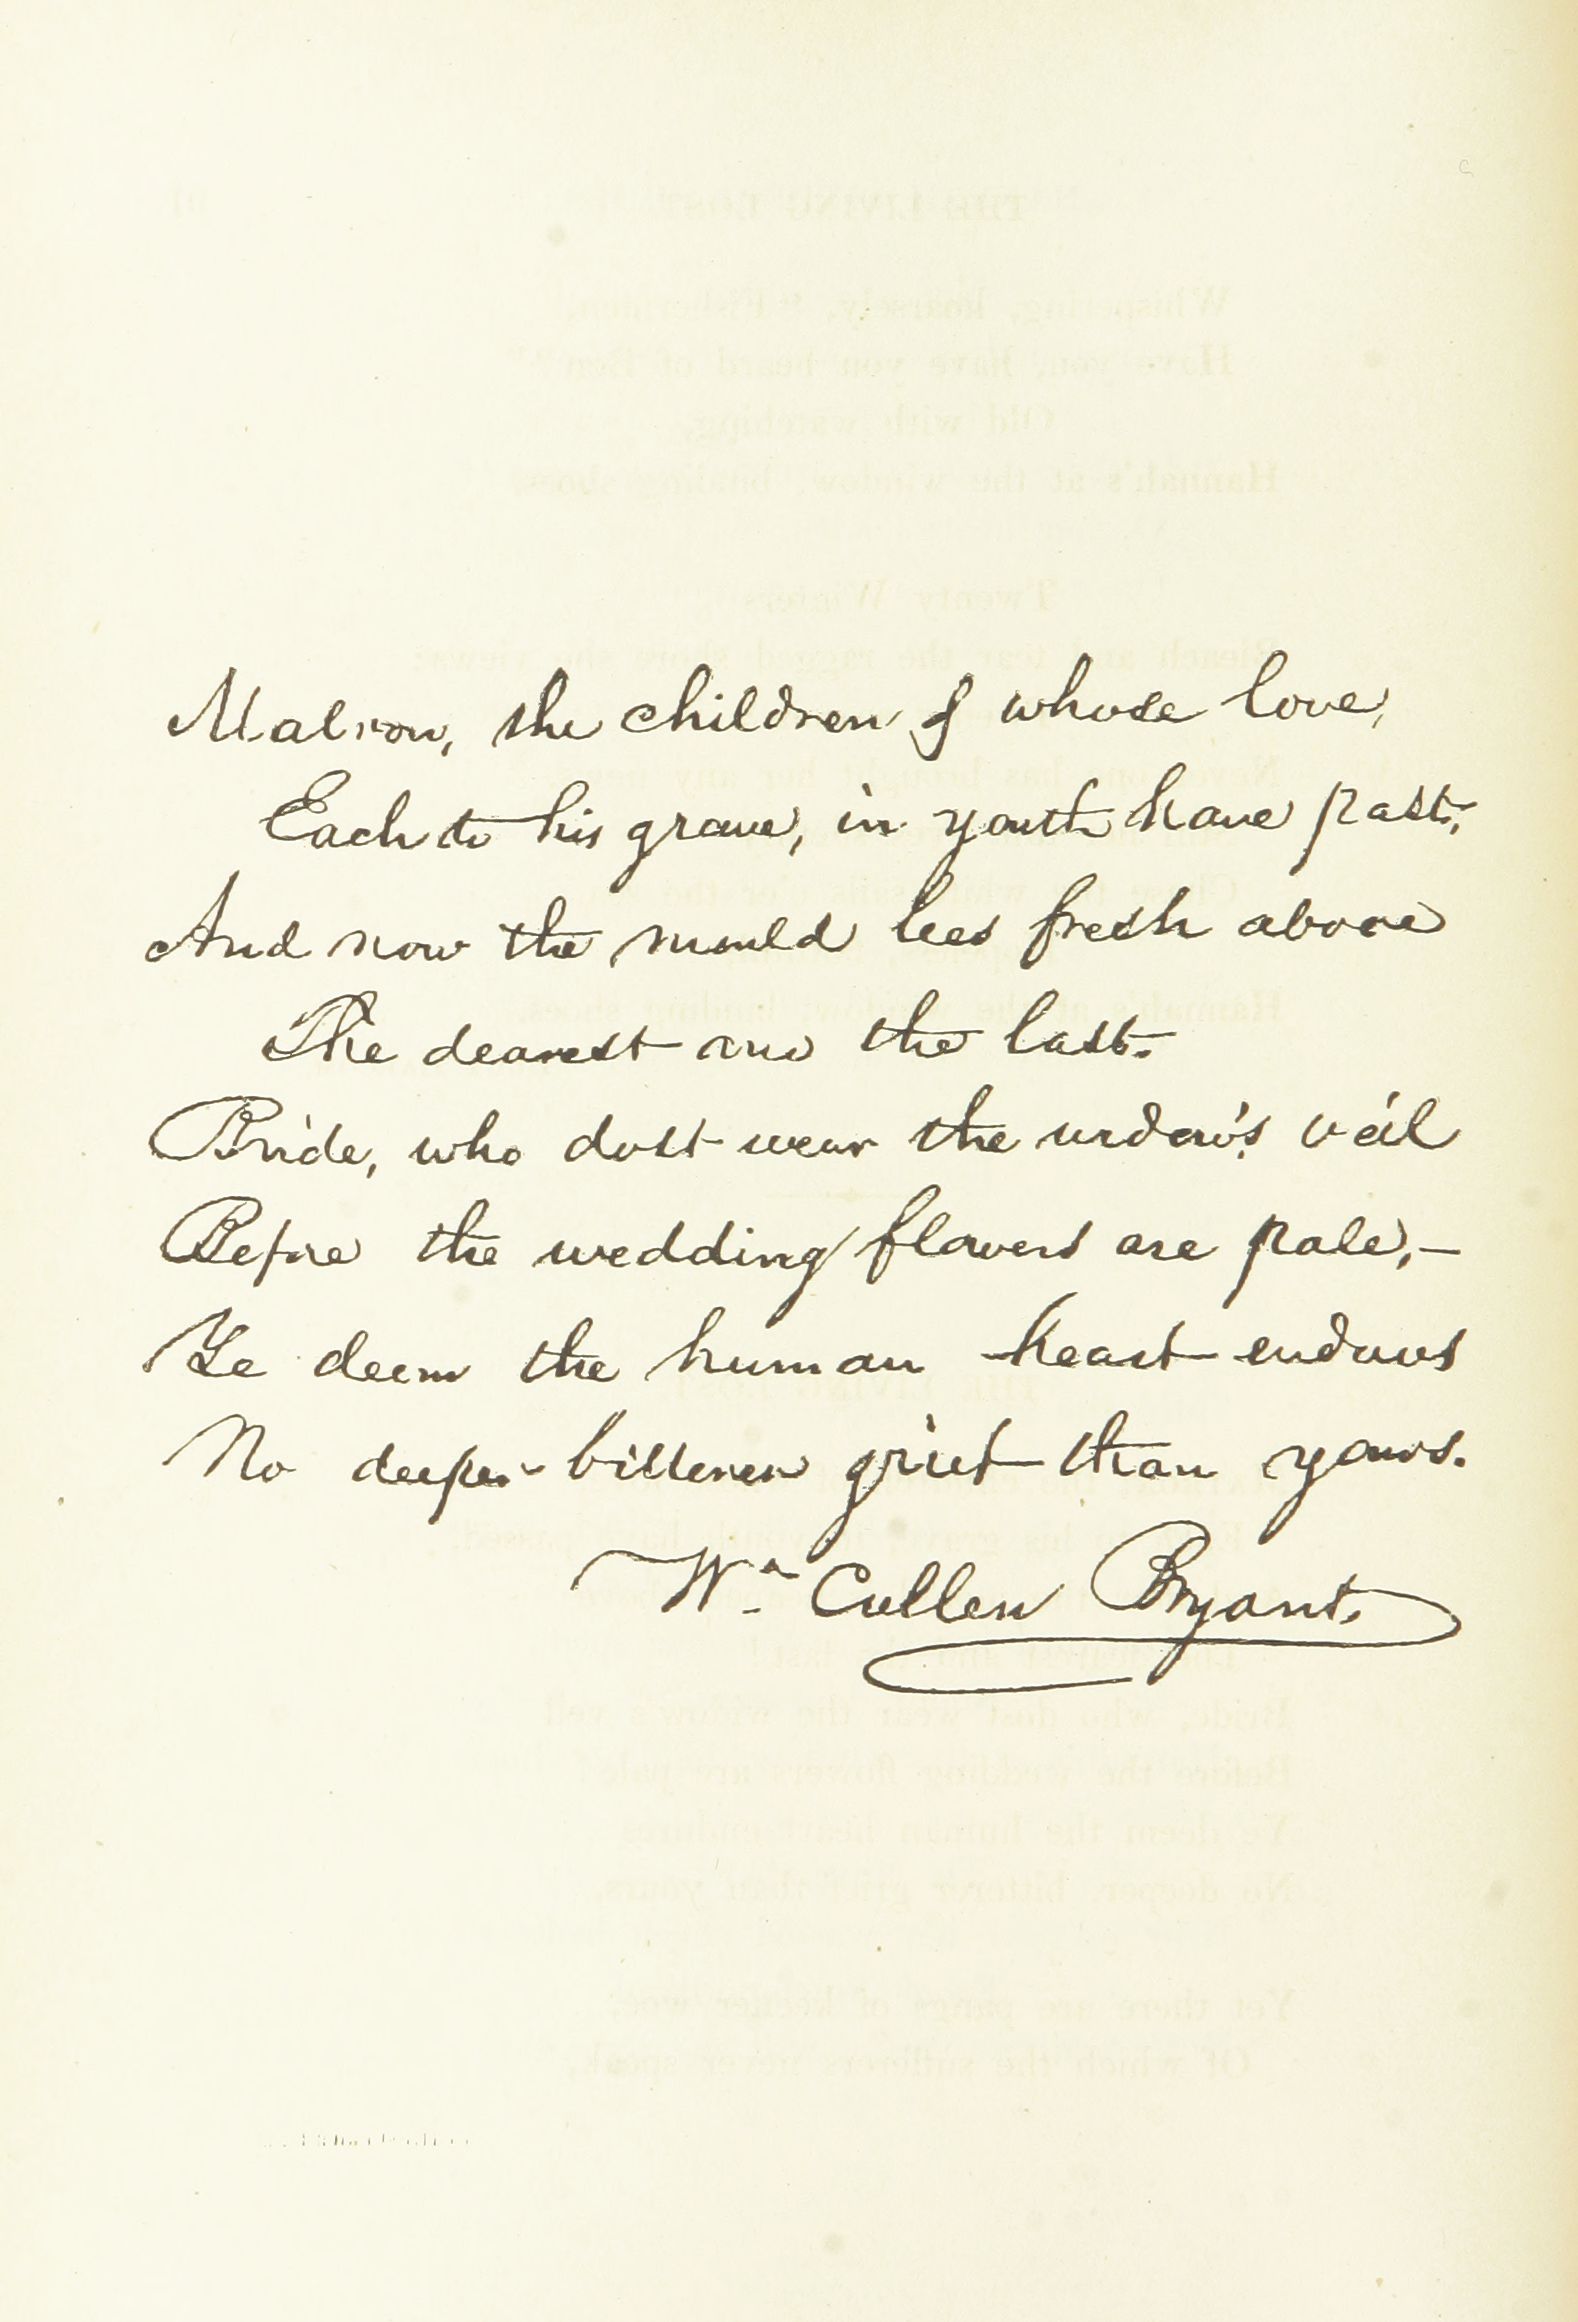 Matron, the children of whose love,
Each to his grave, in youth have past,
And now the mould lies fresh above
The dearest and the last.
Bride, who dost wear the widow's veil
Before the wedding flowers are pale,—
Ye deem the human heart endures
No deeper bitterer grief than yours.
Wm Cullen Bryant.